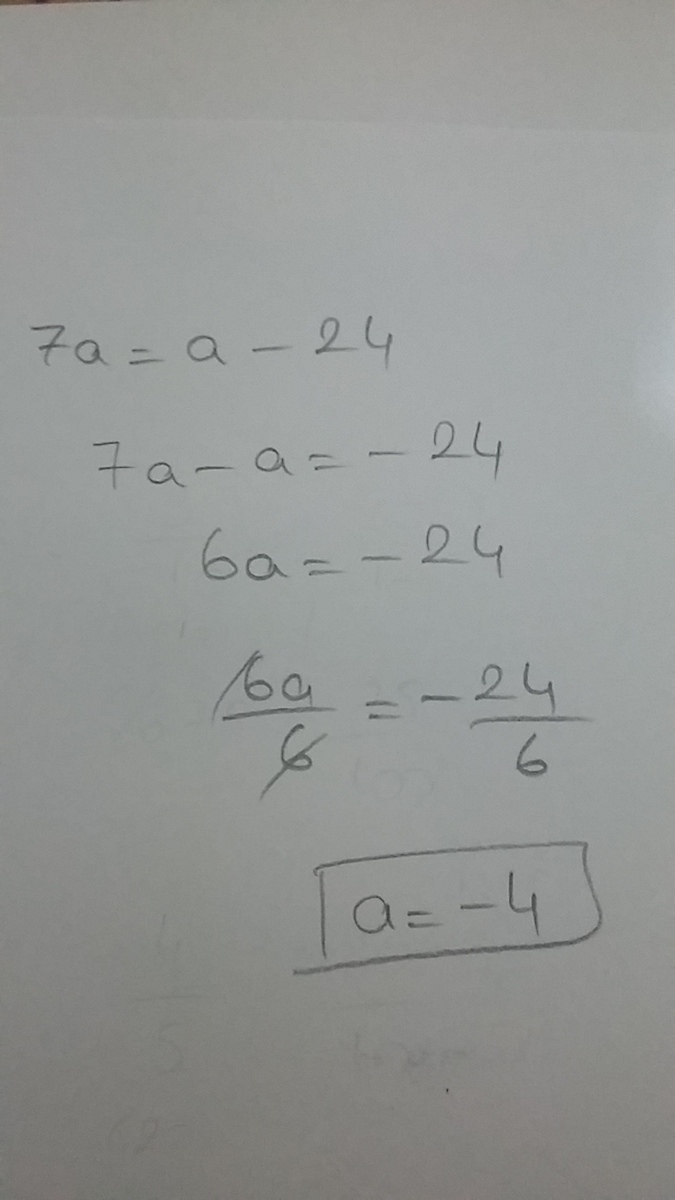 7a = a - 24
7a - a = - 24
6a = - 24
6a/6 = - 24/6
a = - 4